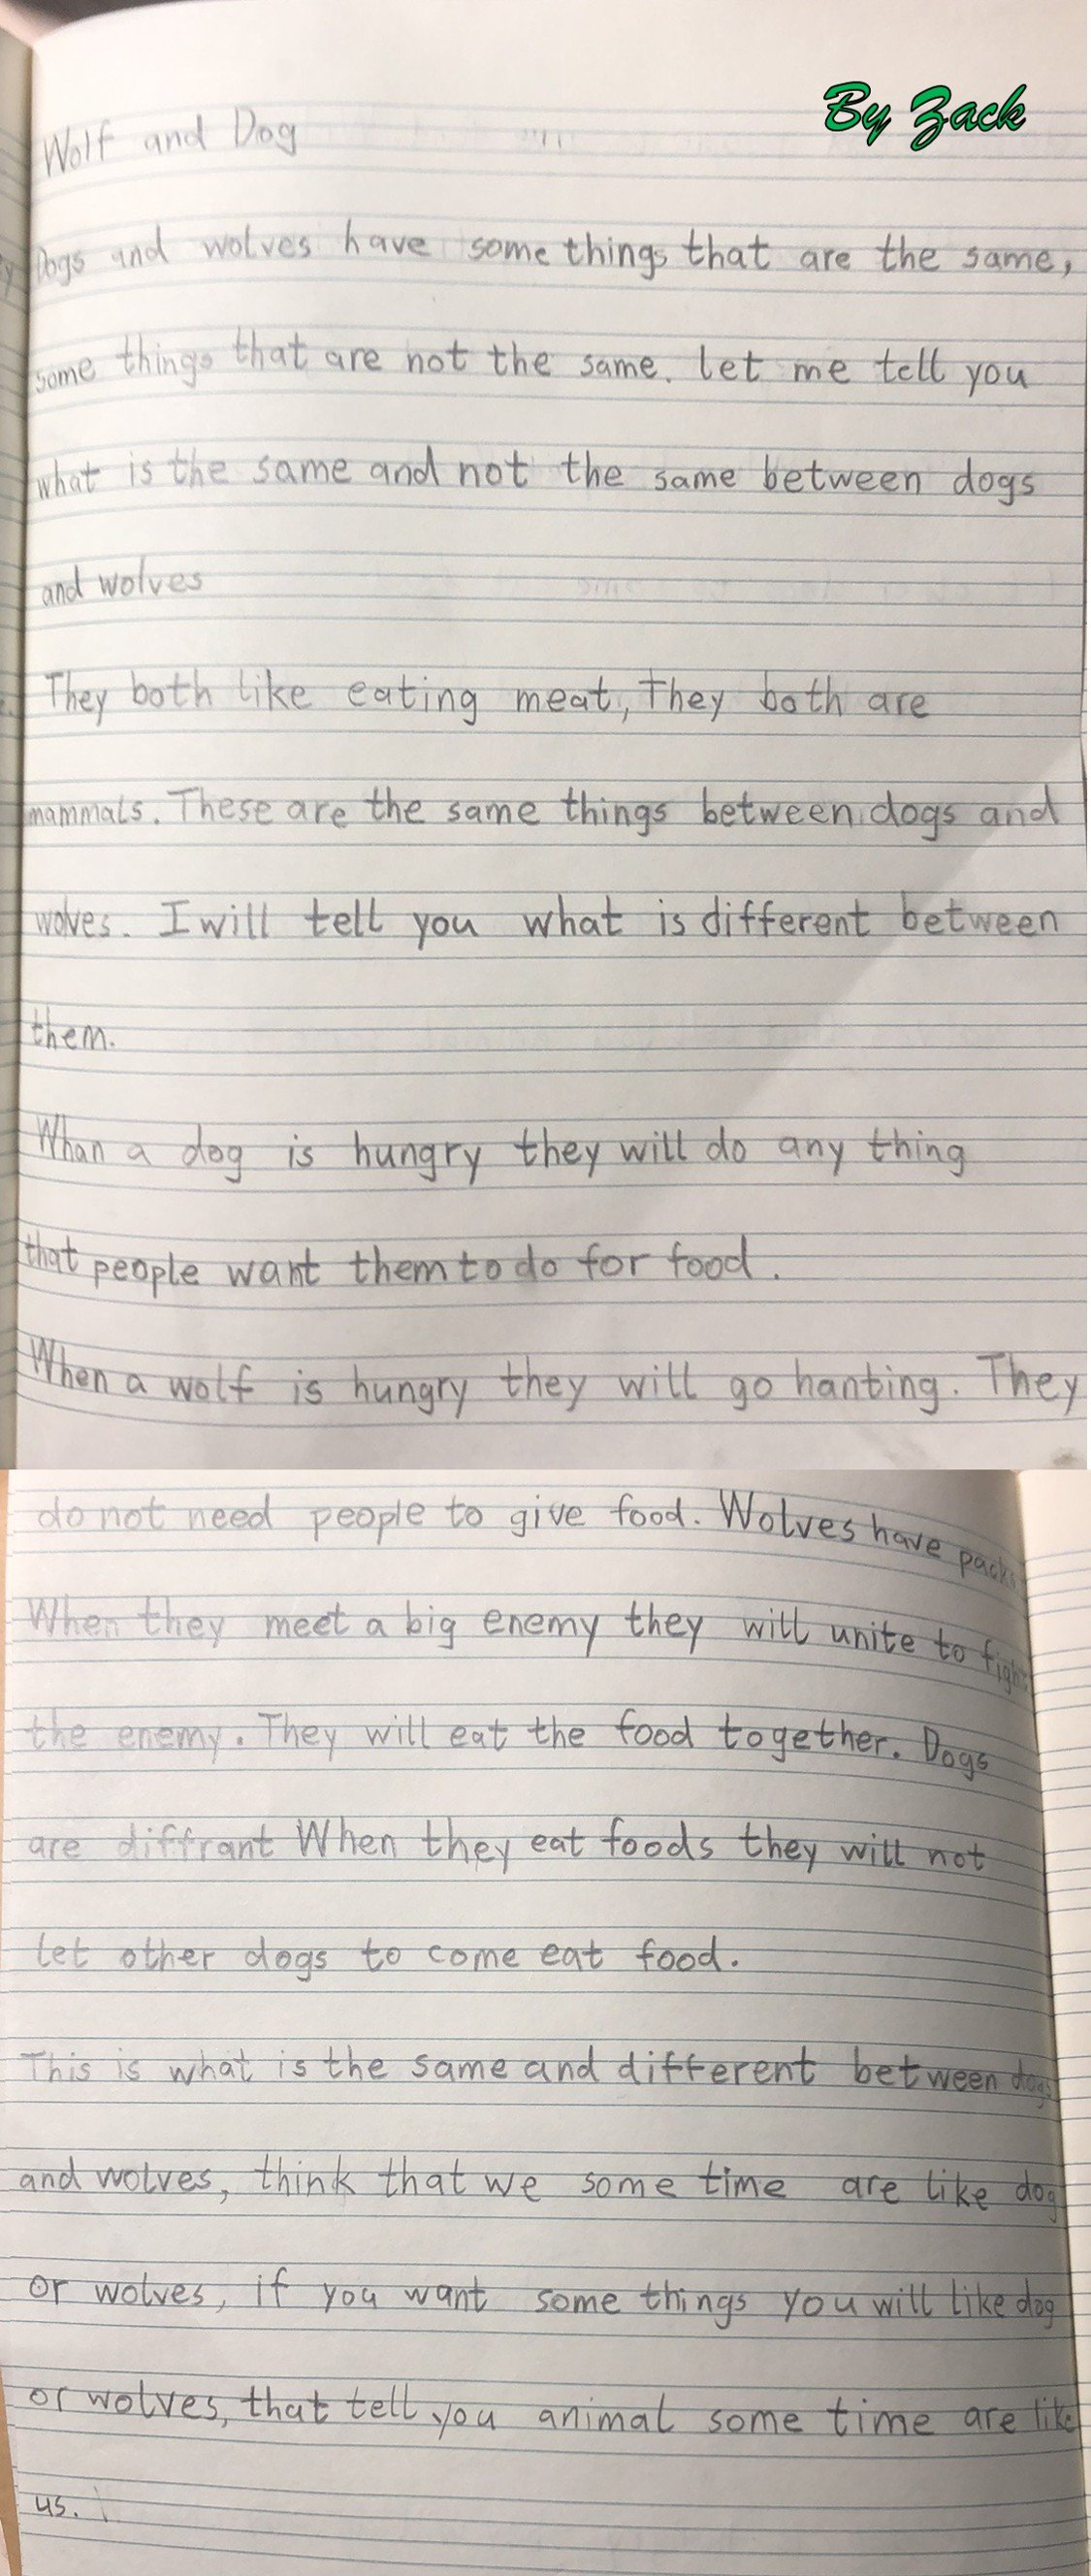 By Zack
Wolf and Dog
Dogs and wolves have some things that are the same,
some things that are not the same. let me tell you
what is the same and not the same between dogs
and wolves
They both like eating meat, They both are
mammals. These are the same things between dogs and
wolves. I will tell you what is different between
them.
Whan a dog is hungry they will do any thing
that people want them to do for food.
When a wolf is hungry they will go hanting. They
do not need people to give food. Wolves have packs
When they meet a big enemy they will unite to fight
the enemy. They will eat the food together. Dogs
are diffrant When they eat foods they will not
let other dogs to come eat food.
This is what is the same and different between dogs
and wolves, think that we some time are like dog
or wolves, if you want some things you will like dog
or wolves, that tell you animal some time are like
us.